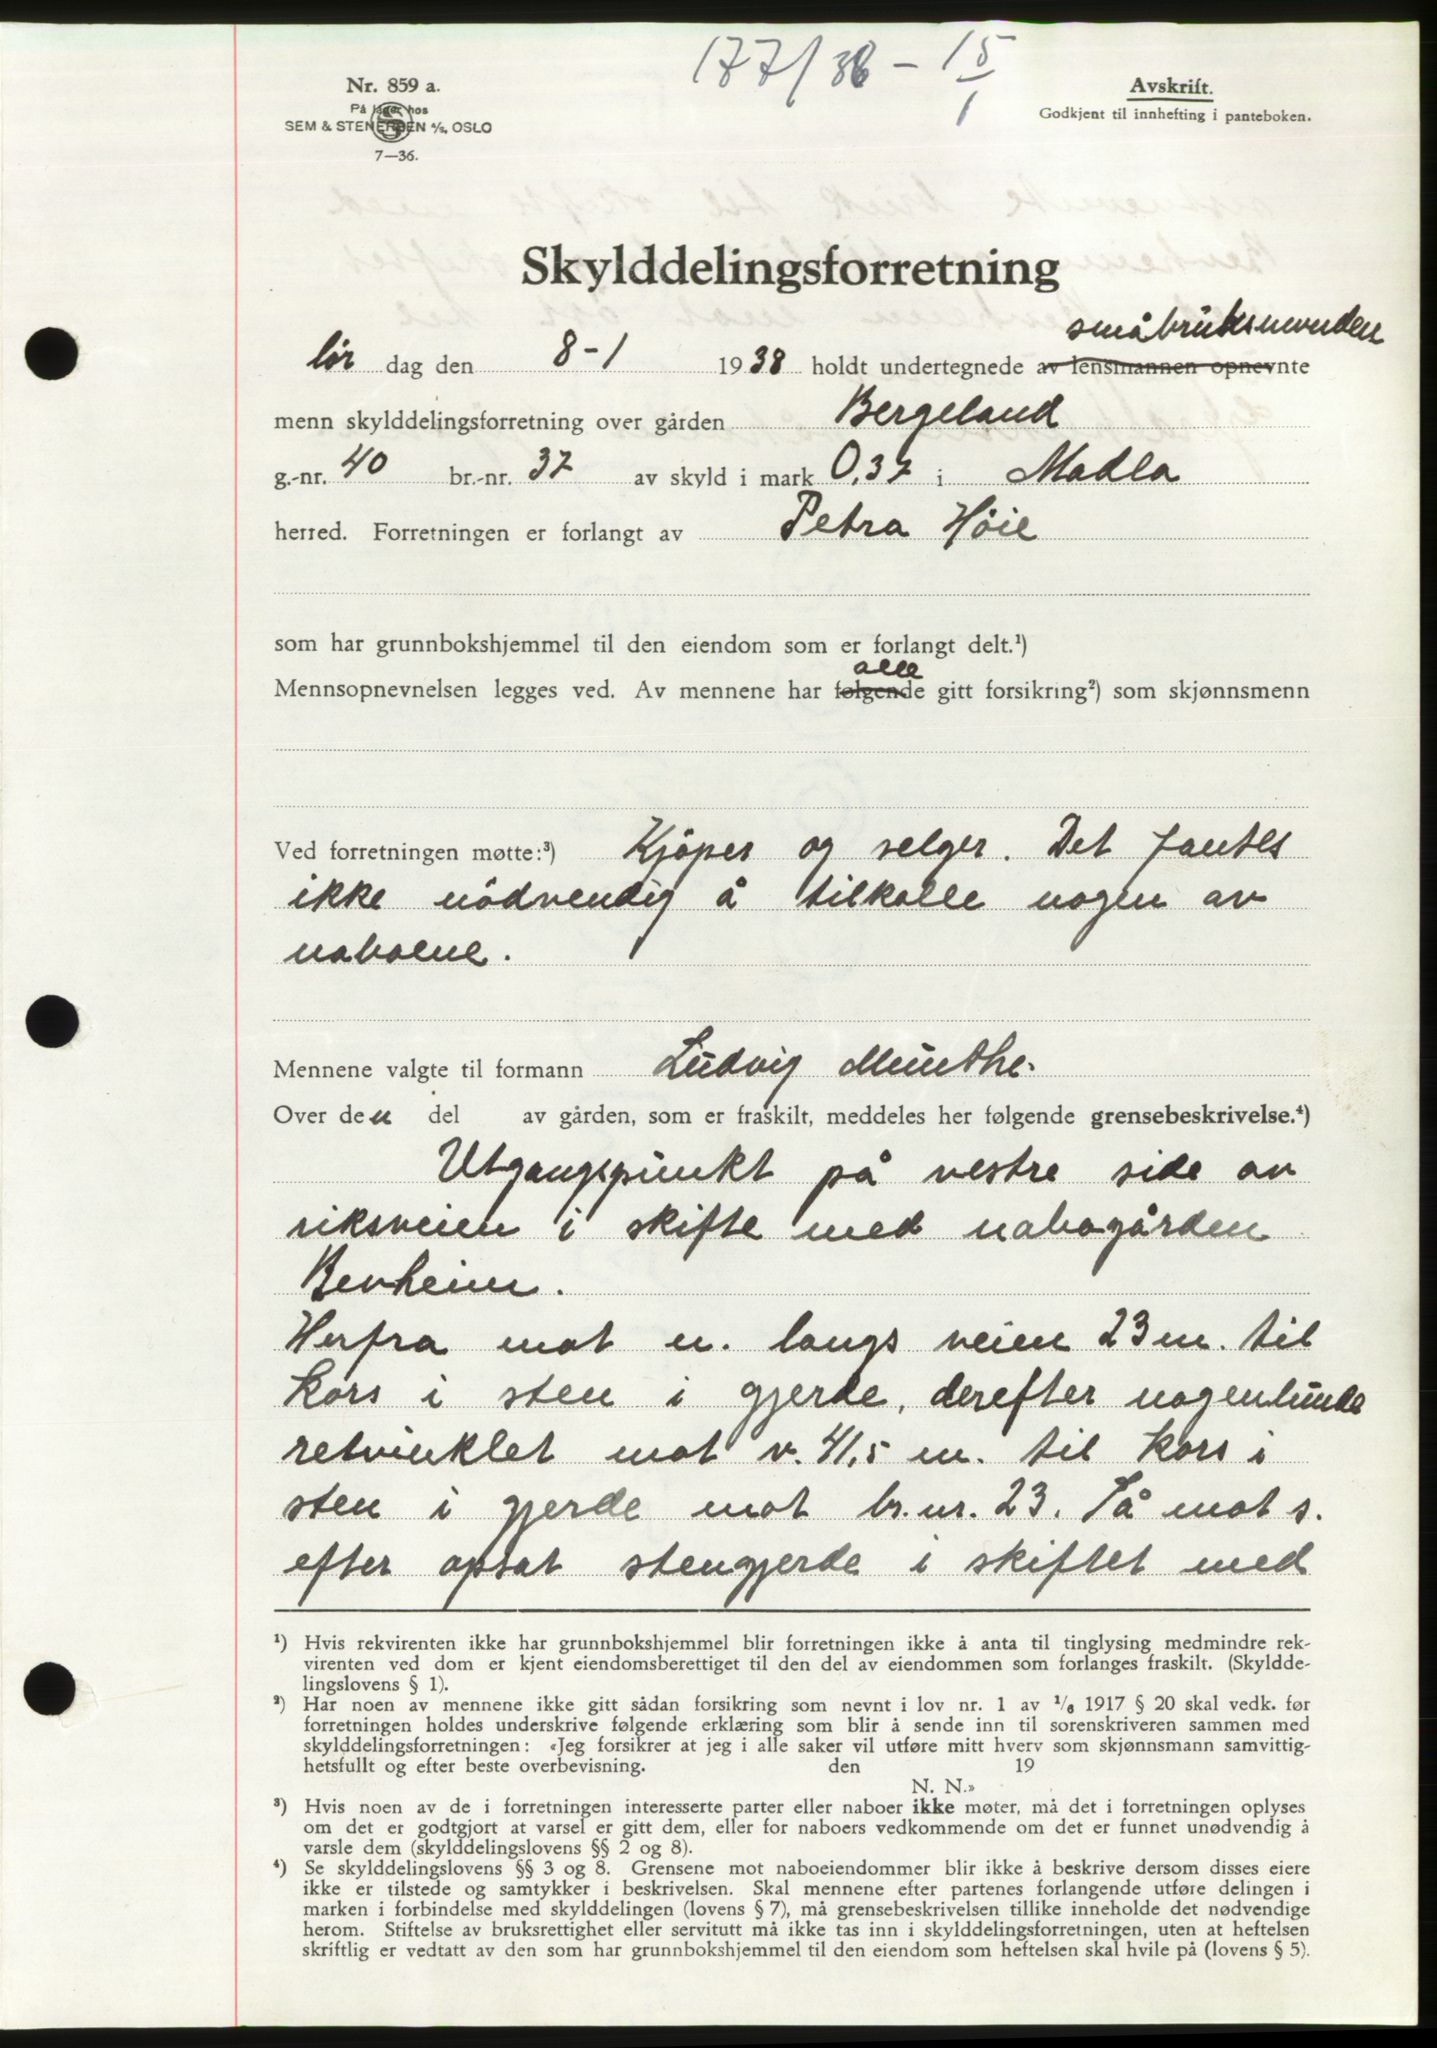 177/38 – 15/1
Nr. 859 a.
På lager hos
SEM & STENERSEN A/S, OSLO
7—36.
Avskrift.
Godkjent til innhefting i panteboken.
Skylddelingsforretning
småbruksmenden
lør dag den 8-1 1938 holdt undertegnede av lensmannen opnevnte
menn skylddelingsforretning over gården Bergeland
g.-nr. 40 br.-nr. 37 av skyld i mark 0,37 i Madla
herred. Forretningen er forlangt av Petra Höie
som har grunnbokshjemmel til den eiendom som er forlangt delt.¹)
alle
Mennsopnevnelsen legges ved. Av mennene har følgende gitt forsikring²) som skjønnsmenn
Ved forretningen møtte:³) Kjöper og selger. Det fantes
ikke nödvendig å tilkalle nogen av
naboene.
Mennene valgte til formann Ludvig Munthe.
Over den del av gården, som er fraskilt, meddeles her følgende grensebeskrivelse.⁴)
Utgangspunkt på vestre side av
riksveien i skifte med nabogården
Benheim.
Herfra mot n. langs veien 23 m. til
kors i sten i gjerde, derefter nogenlunde
retvinklet mot v. 41,5 m. til kors i
sten i gjerde mot br.nr. 23. Så mot s.
efter opsat stengjerde i skiftet med
¹) Hvis rekvirenten ikke har grunnbokshjemmel blir forretningen ikke å anta til tinglysing medmindre rek-
virenten ved dom er kjent eiendomsberettiget til den del av eiendommen som forlanges fraskilt. (Skyldde-
lingslovens § 1).
²) Har noen av mennene ikke gitt sådan forsikring som nevnt i lov nr. 1 av ¹/₆ 1917 § 20 skal vedk. før
forretningen holdes underskrive følgende erklæring som blir å sende inn til sorenskriveren sammen med
skylddelingsforretningen: «Jeg forsikrer at jeg i alle saker vil utføre mitt hverv som skjønnsmann samvittig-
hetsfullt og efter beste overbevisning. den 19
N. N.»
³) Hvis noen av de i forretningen interesserte parter eller naboer ikke møter, må det i forretningen oplyses
om det er godtgjort at varsel er gitt dem, eller for naboers vedkommende om det er funnet unødvendig å
varsle dem (skylddelingslovens §§ 2 og 8).
⁴) Se skylddelingslovens §§ 3 og 8. Grensene mot naboeiendommer blir ikke å beskrive dersom disses eiere
ikke er tilstede og samtykker i beskrivelsen. Skal mennene efter partenes forlangende utføre delingen i
marken i forbindelse med skylddelingen (lovens § 7), må grensebeskrivelsen tillike inneholde det nødvendige
herom. Stiftelse av bruksrettighet eller servitutt må ikke tas inn i skylddelingsforretningen, uten at heftelsen
skriftlig er vedtatt av den som har grunnbokshjemmel til den eiendom som heftelsen skal hvile på (lovens § 5).